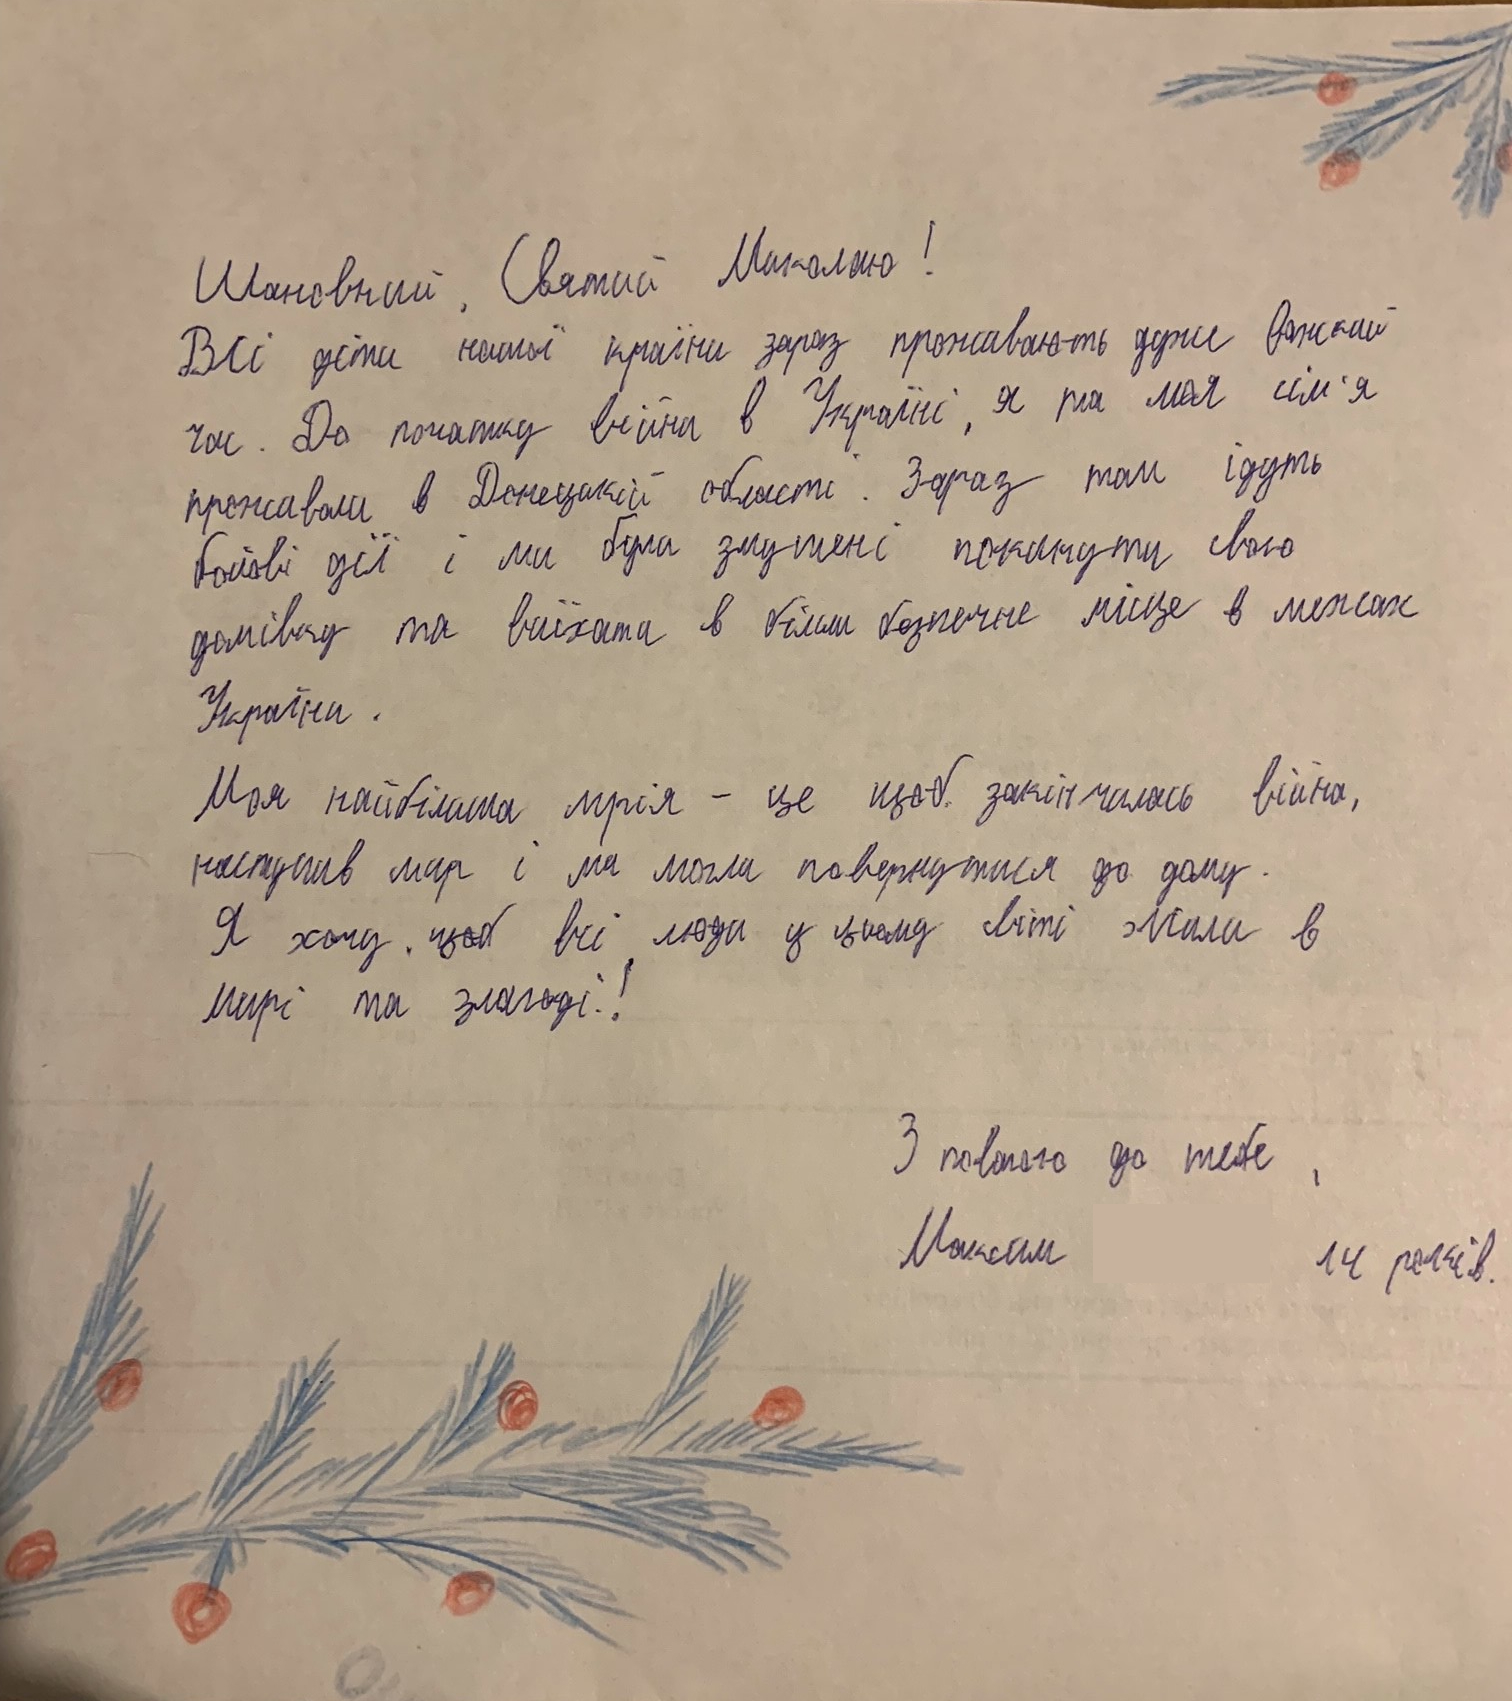 Шановний, Святий Миколаю!
Всі діти нашої країни зараз проживають дуже важкий
час. До початку війни в Україні, я та моя сім'я
проживали в Донецькій області. Зараз там ідуть
бойові дії і ми були змушені покинути свою
домівку та виїхати в більш безпечне місце в межах
України.
Моя найбільша мрія - це щоб закінчилась війна,
наступив мир і ми могли повернутися до дому.
Я хочу, щоб всі люди у цьому світі жили в
мирі та злагоді!
З повагою до тебе,
Максим 14 років.